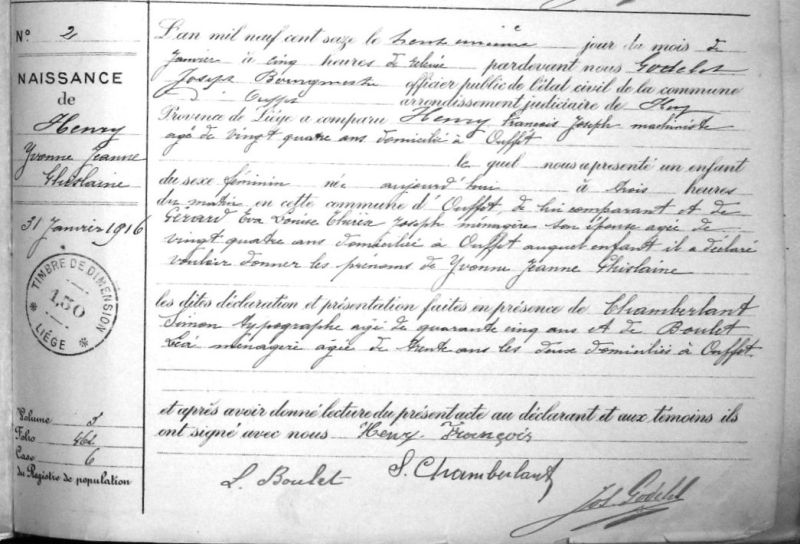 N° 2
NAISSANCE
de
Henry
Yvonne Jeanne
Ghislaine
31 Janvier 1916
TIMBRE DE DIMENSION
1.50
LIÉGE
Volume 3
Folio 462
Case 6
du Registre de population
L'an mil neuf cent seize le trente unième jour du mois de
Janvier à cinq heures de relevée pardevant nous Godelet
Joseph Bourgmestre officier public de l'état civil de la commune
d'Ouffet arrondissement judiciaire de Huy
Province de Liége a comparu Henry François Joseph machiniste
agé de vingt quatre ans domicilié à Ouffet
le quel nous a présenté un enfant
du sexe féminin née aujourd'hui à trois heures
du matin en cette commune d'Ouffet, de lui comparant et de
Gérard Eva Louise Thérèse Joseph ménagère son épouse agée de
vingt quatre ans domiciliée à Ouffet auquel enfant il a déclaré
vouloir donner les prénoms de Yvonne Jeanne Ghislaine
les dites déclaration et présentation faites en présence de Chamberlant
Simon typographe agé de quarante cinq ans et de Boulet
Léa ménagère agée de trente ans les deux domiciliés à Ouffet.
et après avoir donné lecture du présent acte au déclarant et aux témoins ils
ont signé avec nous Henry François
L. Boulet S. Chamberlant
Jos. Godelet